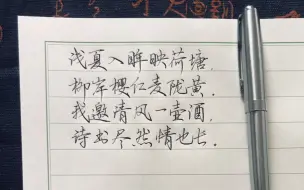 浅夏入眸映荷塘，
柳岸樱红麦陇黄。
我邀清风一壶酒，
诗书尽然情也长。